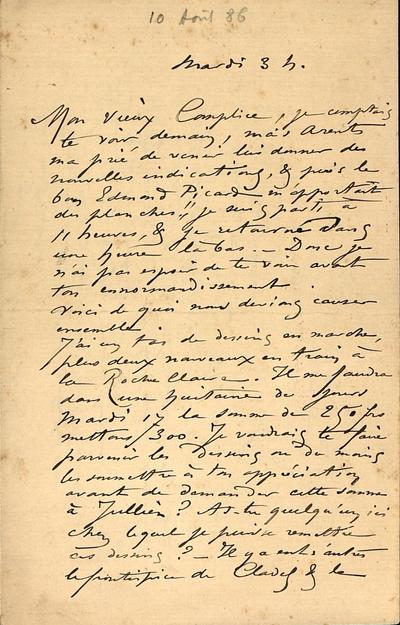 10 Août 86
Mardi 3 h.
Mon vieux Complice, je comptais
te voir demain, mais Arents
m'a prié de venir lui donner des
nouvelles indications, & puis le
bon Edmond Picard m'apportait
des planches!! je suis parti à
11 heures, & je retourne dans
une heure là bas. _ Donc je
n'ai pas espoir de te voir avant
ton ennormandissement.
Voici de quoi nous devions causer
ensemble
J'ai un tas de dessins en marche,
plus deux nouveaux en train à
la Roche Claire. Il me faudra
dans une quinzaine de jours
Mardi 17 la somme de 250 frs
mettons 300. Je voudrais te faire
parvenir les dessins ou du moins
les soumettre à ton appréciation
avant de demander cette somme
à Jullien? As-tu quelqu'un ici
chez lequel je puisse remettre
ces dessins? _ Il y a entr'autres
le frontispice de Cladel & le